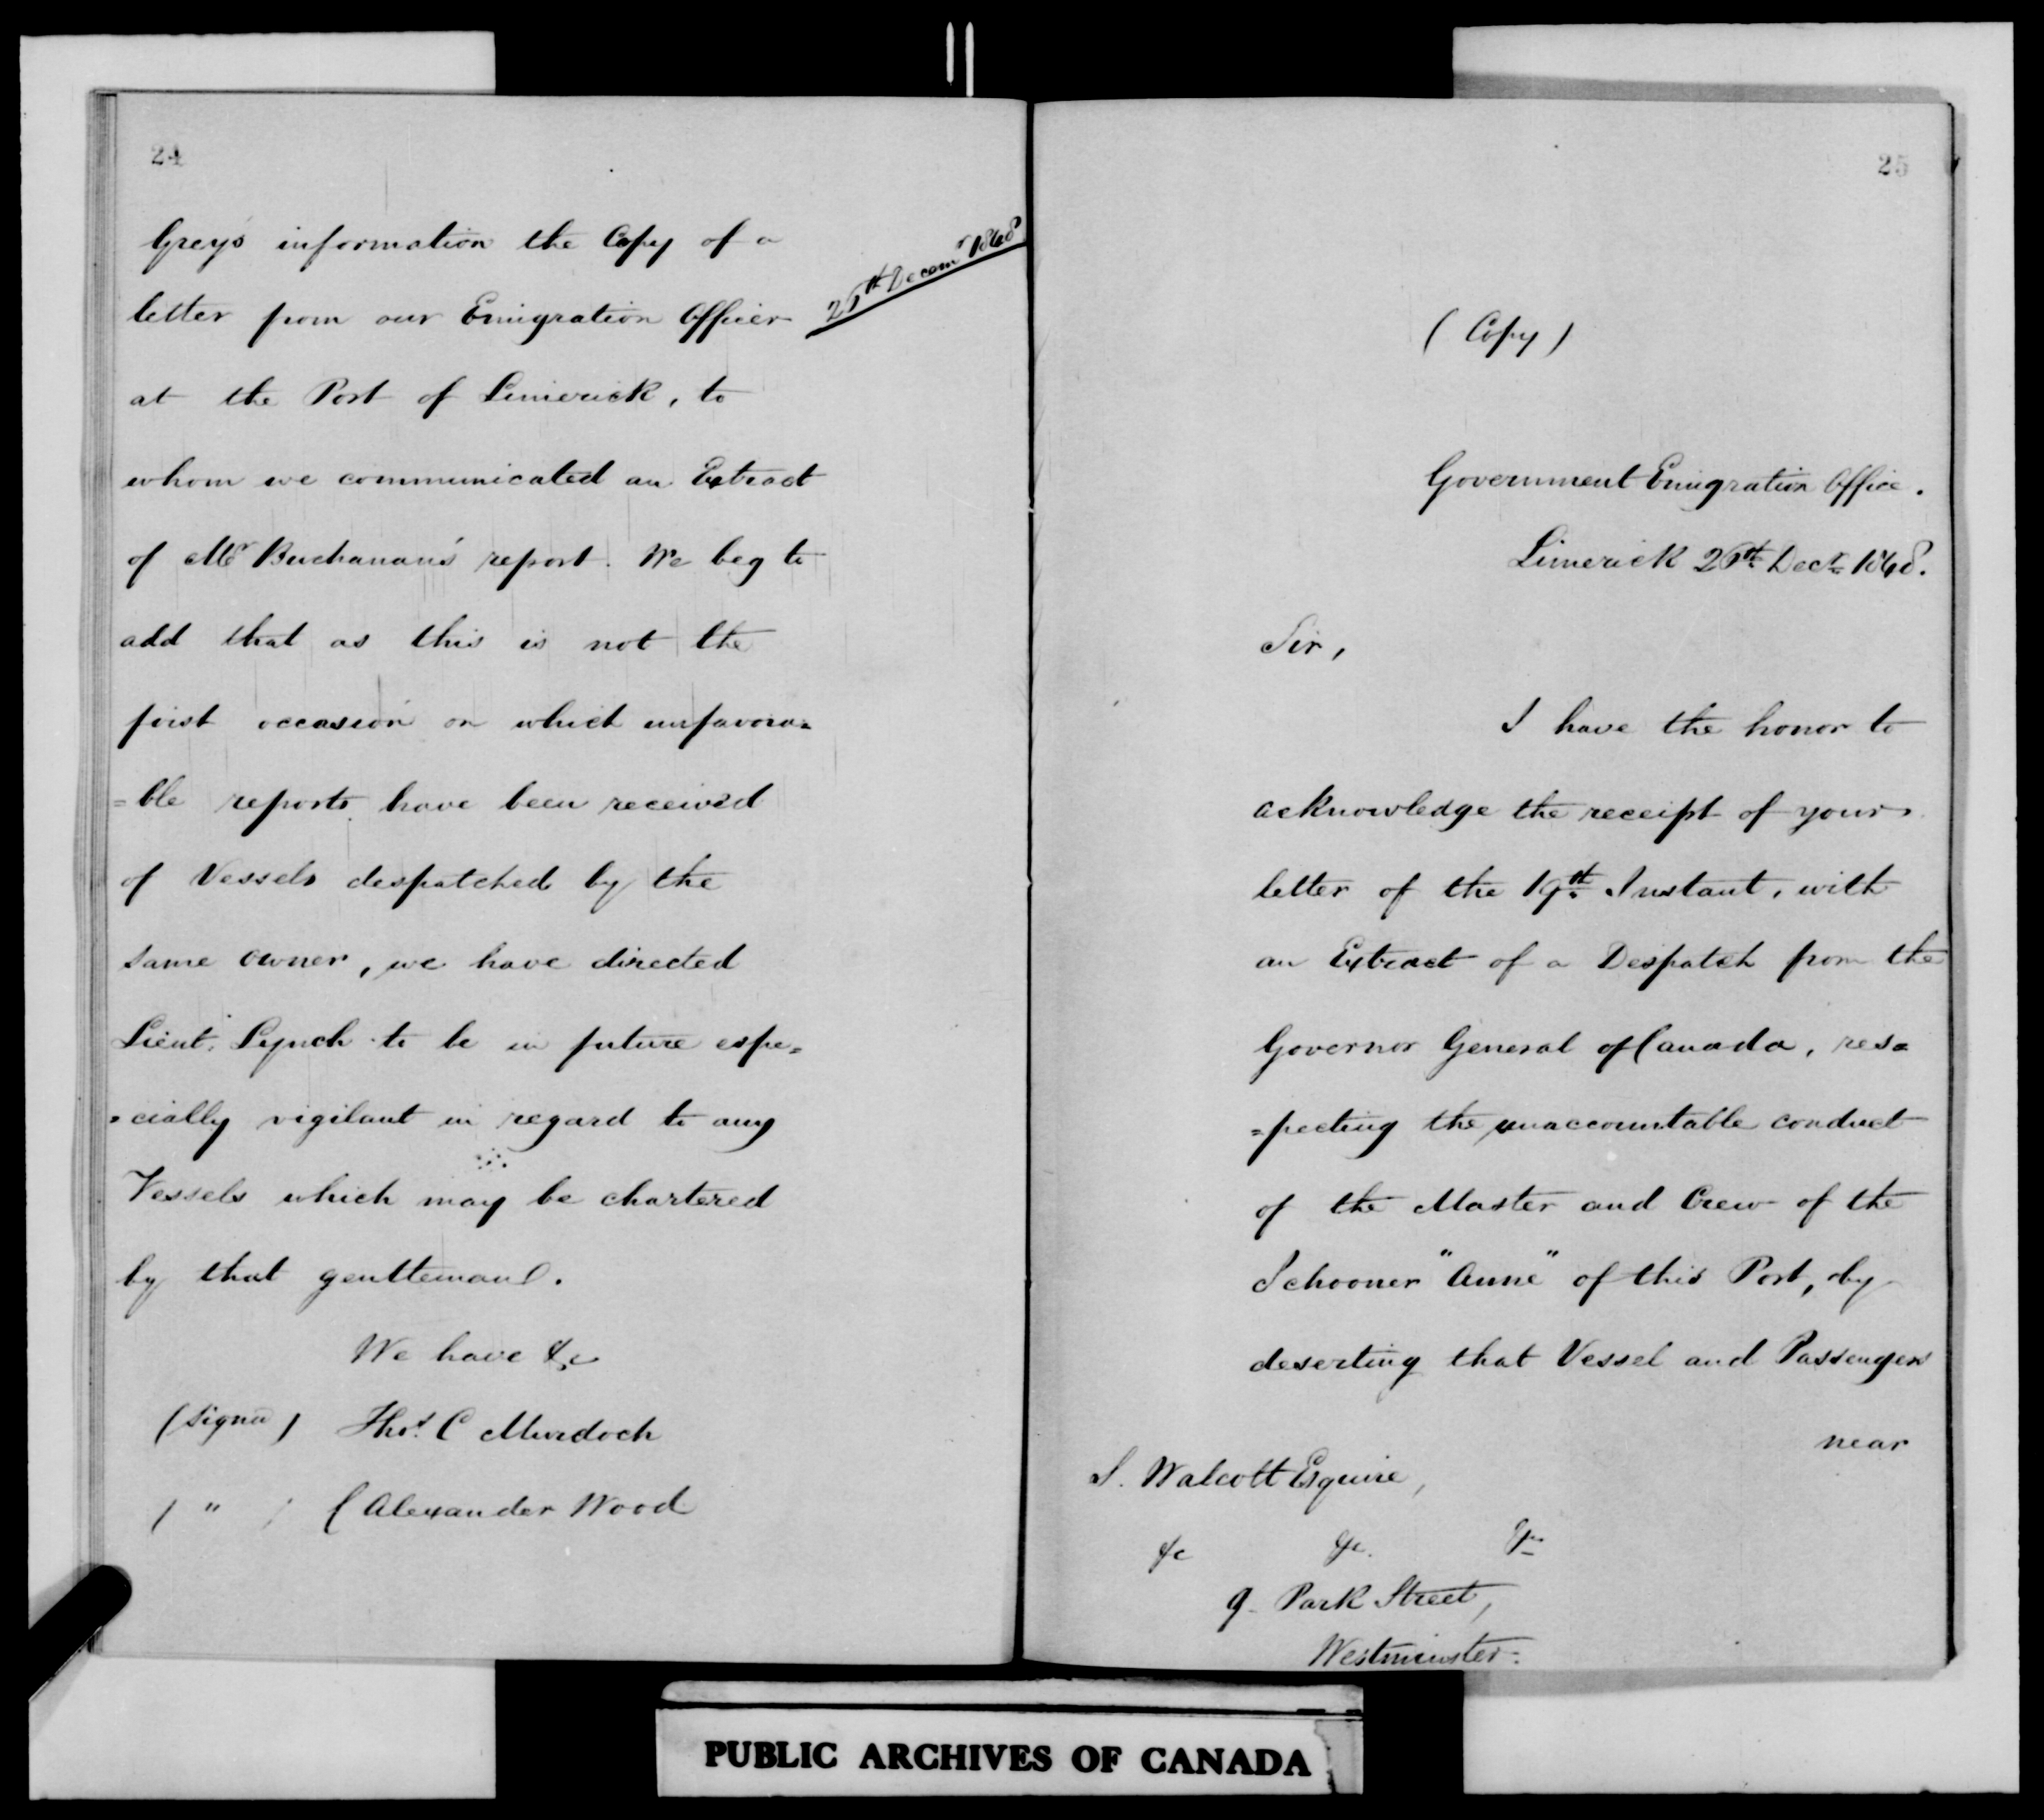 24
Grey's information the Copy of a
25th Decemr 1848
letter from our Emigration Officer
at the Port of Limerick, to
whom we communicated an Extract
of Mr Buchanan's report. We beg to
add that as this is not the
first occasion on which unfavora=
=ble reports have been received
of Vessels despatched by the
same owner, we have directed
Lieut. Lynch to be in future espe=
=cially vigilant in regard to any
Vessels which may be chartered
by that gentleman.
We have &c
(signed) Thos. C Murdoch
( " ) C Alexander Wood
25
(Copy)
Government Emigration Office.
Limerick 25th Decr 1848.
Sir,
I have the honor to
acknowledge the receipt of your
letter of the 19th Instant, with
an Extract of a Despatch from the
Governor General of Canada, res=
=pecting the unaccountable conduct
of the Master and Crew of the
Schooner "Anne" of this Port, by
deserting that Vessel and Passengers
near
S. Walcott Esquire,
&c &c. &c
9 Park Street,
Westminster.
PUBLIC ARCHIVES OF CANADA